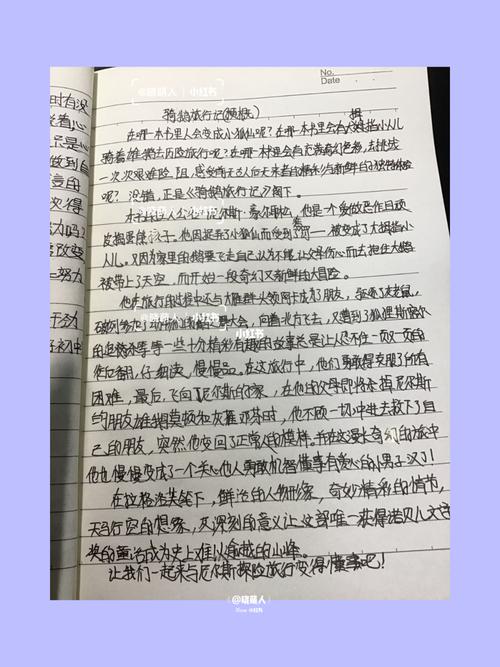 @晓萌人 小红书
No.
Date
骑鹅旅行记(梗概)
在哪一本书里人会变成小狐仙呢?在哪一本书里会有大拇指小人儿
骑着雄鹅去历险旅行呢?在哪一本书里会有充满奇幻色彩,去挑战
一次次艰难险阻,感受前无古人后无来者的精彩与新鲜的独特体验
呢?没错,正是《骑鹅旅行记》阁下。
本书主人公尼尔斯·豪尔耶松,他是个爱做恶作剧顽
皮捣蛋的孩子。他因捉弄小狐仙而受到了惩罚——被变成了大拇指小
人儿。又因为家里的鹅要飞走自己认为不能让父母伤心而去抱住大鹅
被带上了天空,而开始一段奇幻又新鲜的大冒险。
他在旅行的过程中还与大雁群头领阿卡成为了朋友,
参加了动物们的大会,向着北方飞去,又遭到了狐狸斯密尔
的追杀等等一些十分精彩有趣的故事总是让人忍不住一页一页的
往后翻,仔细读,慢慢品。在这旅行中,他们勇敢得克服了所有
困难,最后,飞向尼尔斯的家,在他的父母即将杀掉尼尔斯
的朋友雄鹅莫顿和灰雁邓芬时,他不顾一切冲进去救下了自
己的朋友,突然他变回了正常人的模样。并在这漫长奇幻的旅途中
他也慢慢变成了一个关心他人勇敢机智懂事有爱心的小男子汉了!
在拉格洛芙笔下,鲜活的人物形象,奇妙精彩的情节,
天马行空的想象,及深刻的意义让这部唯一获得诺贝儿文学
奖的童话成为史上难以逾越的山峰。
让我们一起来与尼尔斯探险旅行变得懂事吧!
@晓萌人
小红书